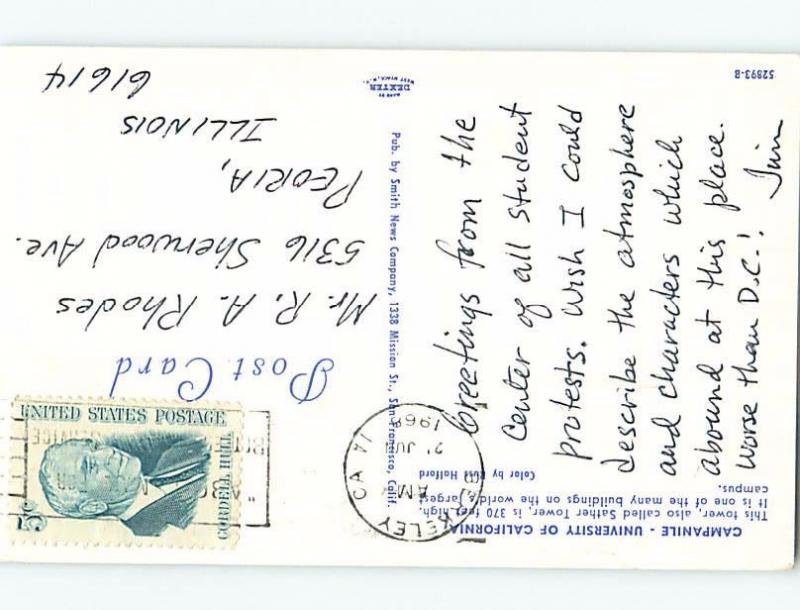 CAMPANILE - UNIVERSITY OF CALIFORNIA
This tower, also called Sather Tower, is 370 feet high.
It is one of the many buildings on the world's largest
campus.
Color by Russ Halford
Greetings from the
Center of all student
protests. Wish I could
describe the atmosphere
and characters which
abound at this place.
Worse than D.C.!
52893-B
Pub. by Smith News Company, 1338 Mission St., San Francisco, Calif.
MADE BY
DEXTER
WEST NYACK, N.Y.
Post Card
Mr. R. A. Rhodes
5316 Sherwood Ave.
PEORIA,
ILLINOIS
61614
UNITED STATES POSTAGE
CORDELL HULL
5c
BERKELEY CA
AM
1968